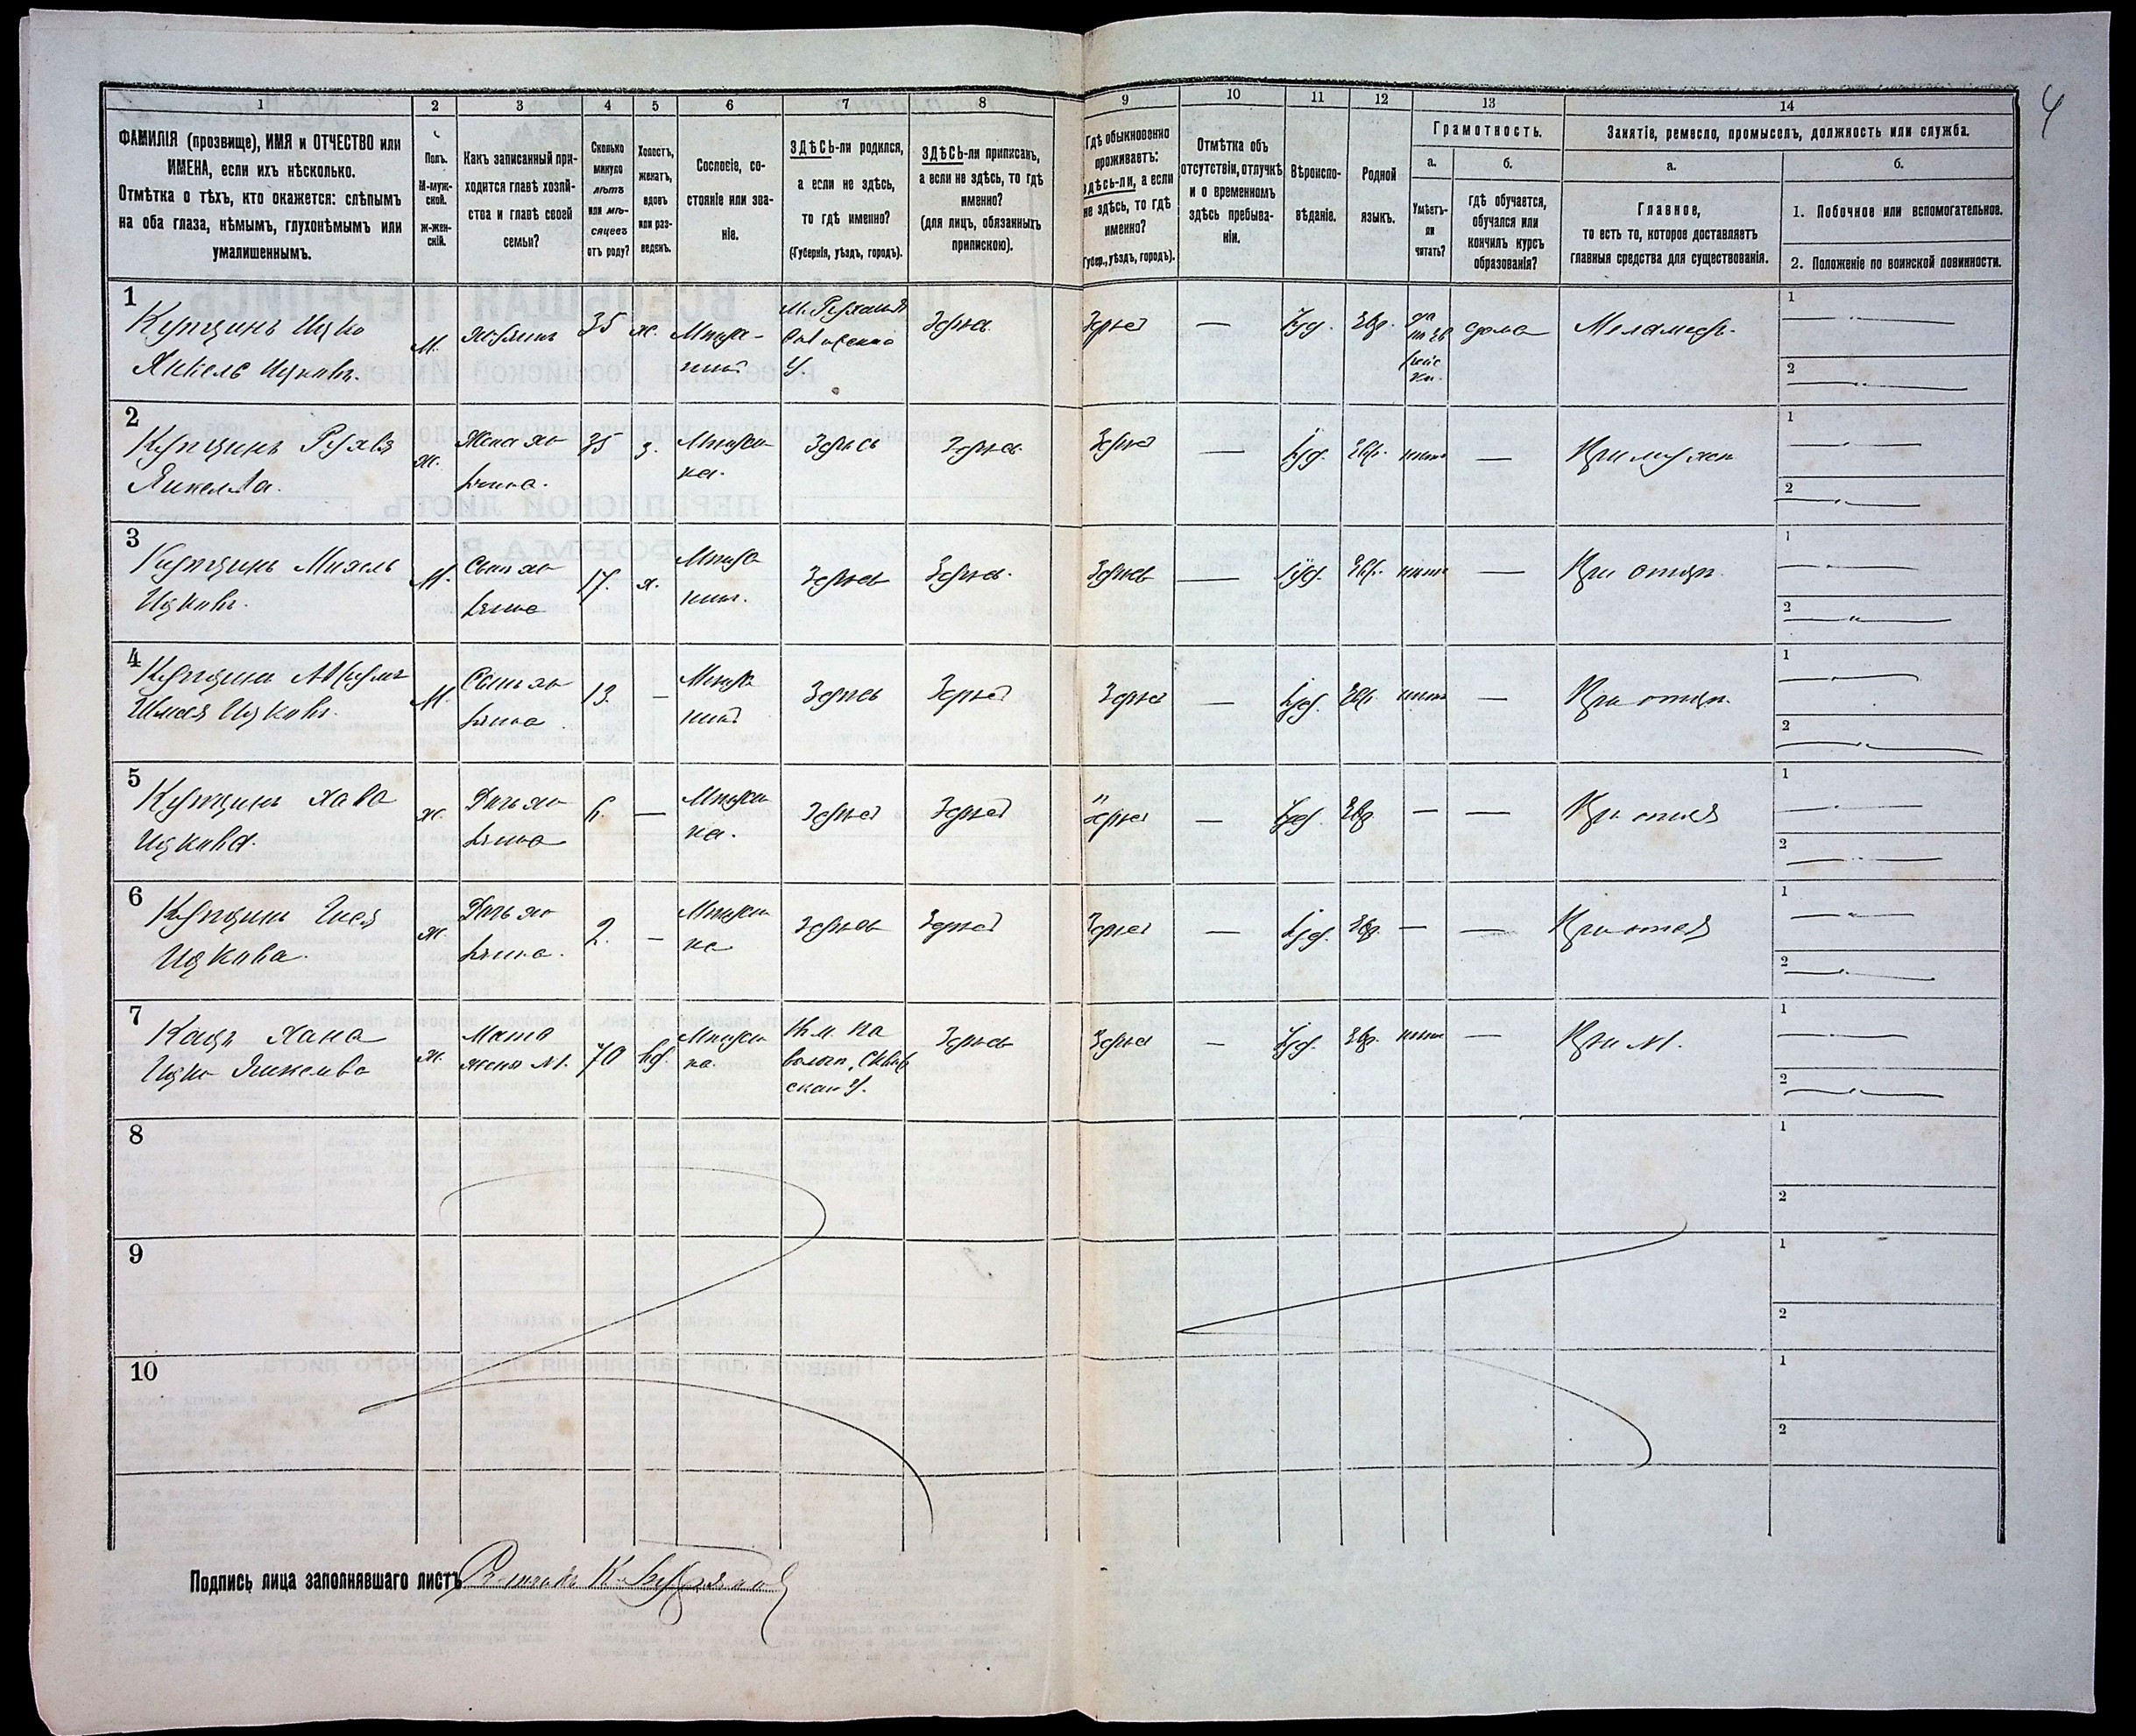 4
1 2 3 4 5 6 7 8 9 10 11 12 13 14
ФАМИЛІЯ (прозвище), ИМЯ и ОТЧЕСТВО или
ИМЕНА, если ихъ нѣсколько.
Отмѣтка о тѣхъ, кто окажется: слѣпымъ
на оба глаза, нѣмымъ, глухонѣмымъ или
умалишеннымъ.
Полъ.
М-муж-
ской.
ж-жен-
скій.
Какъ записанный при-
ходится главѣ хозяй-
ства и главѣ своей
семьи?
Сколько
минуло
лѣтъ
или мѣ-
сяцевъ
отъ роду?
Холостъ,
женатъ,
вдовъ
или раз-
веденъ.
Сословіе, со-
стояніе или зва-
ніе.
ЗДѢСЬ-ли родился,
а если не здѣсь,
то гдѣ именно?
(Губернія, уѣздъ, городъ).
ЗДѢСЬ-ли приписанъ,
а если не здѣсь, то гдѣ
именно?
(для лицъ, обязанныхъ
припискою).
Гдѣ обыкновенно
проживаетъ:
здѣсь-ли, а если
не здѣсь, то гдѣ
именно?
(Губер., уѣздъ, городъ).
Отмѣтка объ
отсутствіи, отлучкѣ
и о временномъ
здѣсь пребыва-
ніи.
Вѣроиспо-
вѣданіе.
Родной
языкъ.
Грамотность.
а.
Умѣетъ-
ли
читать?
б.
гдѣ обучается,
обучался или
кончилъ курсъ
образованія?
Занятіе, ремесло, промыселъ, должность или служба.
а.
Главное,
то есть то, которое доставляетъ
главныя средства для существованія.
б.
1. Побочное или вспомогательное.
2. Положеніе по воинской повинности.
1
Купцинъ Ицко
Янкель Ицковъ.
М.
хозяинъ
35
ж.
Мѣща-
нинъ
У.
Здѣсь
Здѣсь
Іуд.
Евр.
да
дома
Меламедъ.
1
2
2
Купцинъ Рухля
Янкелева.
ж.
Жена хо-
зяина.
35
з.
Мѣщан-
ка.
Здѣсь
Здѣсь
Здѣсь
Іуд.
Евр.
нѣтъ
При мужѣ
1
2
3
Купцинъ Михель
Ицковъ.
М.
Сынъ хо-
зяина
17.
х.
Мѣща
нинъ.
Здѣсь
Здѣсь.
Здѣсь
Іуд.
Евр.
нѣтъ
При отцѣ.
1
2
4
Купцинъ Аврумъ
Ицковъ.
М.
Сынъ хо-
зяина
13.
Мѣща
нинъ
Здѣсь
Здѣсь
Здѣсь
Іуд.
Евр.
нѣтъ
При отцѣ.
1
2
5
Купцинъ Хава
Ицкова.
ж.
Дочь хо-
зяина
6.
Мѣщан
ка.
Здѣсь
Здѣсь
Здѣсь
Іуд.
Евр.
При отцѣ
1
2
6
Купцинъ
Ицкова.
ж.
Дочь хо-
зяина.
2.
Мѣщан
ка
Здѣсь
Здѣсь
Здѣсь
Іуд.
Евр.
При отцѣ
1
2
7
Кацъ Хана
Ицко Янкелева
ж.
Мать
жены
70
вд.
Мѣщан
ка.
У.
Здѣсь
Здѣсь
Іуд.
Евр.
нѣтъ
При
1
2
8
1
2
9
1
2
10
1
2
Подпись лица заполнявшаго листъ